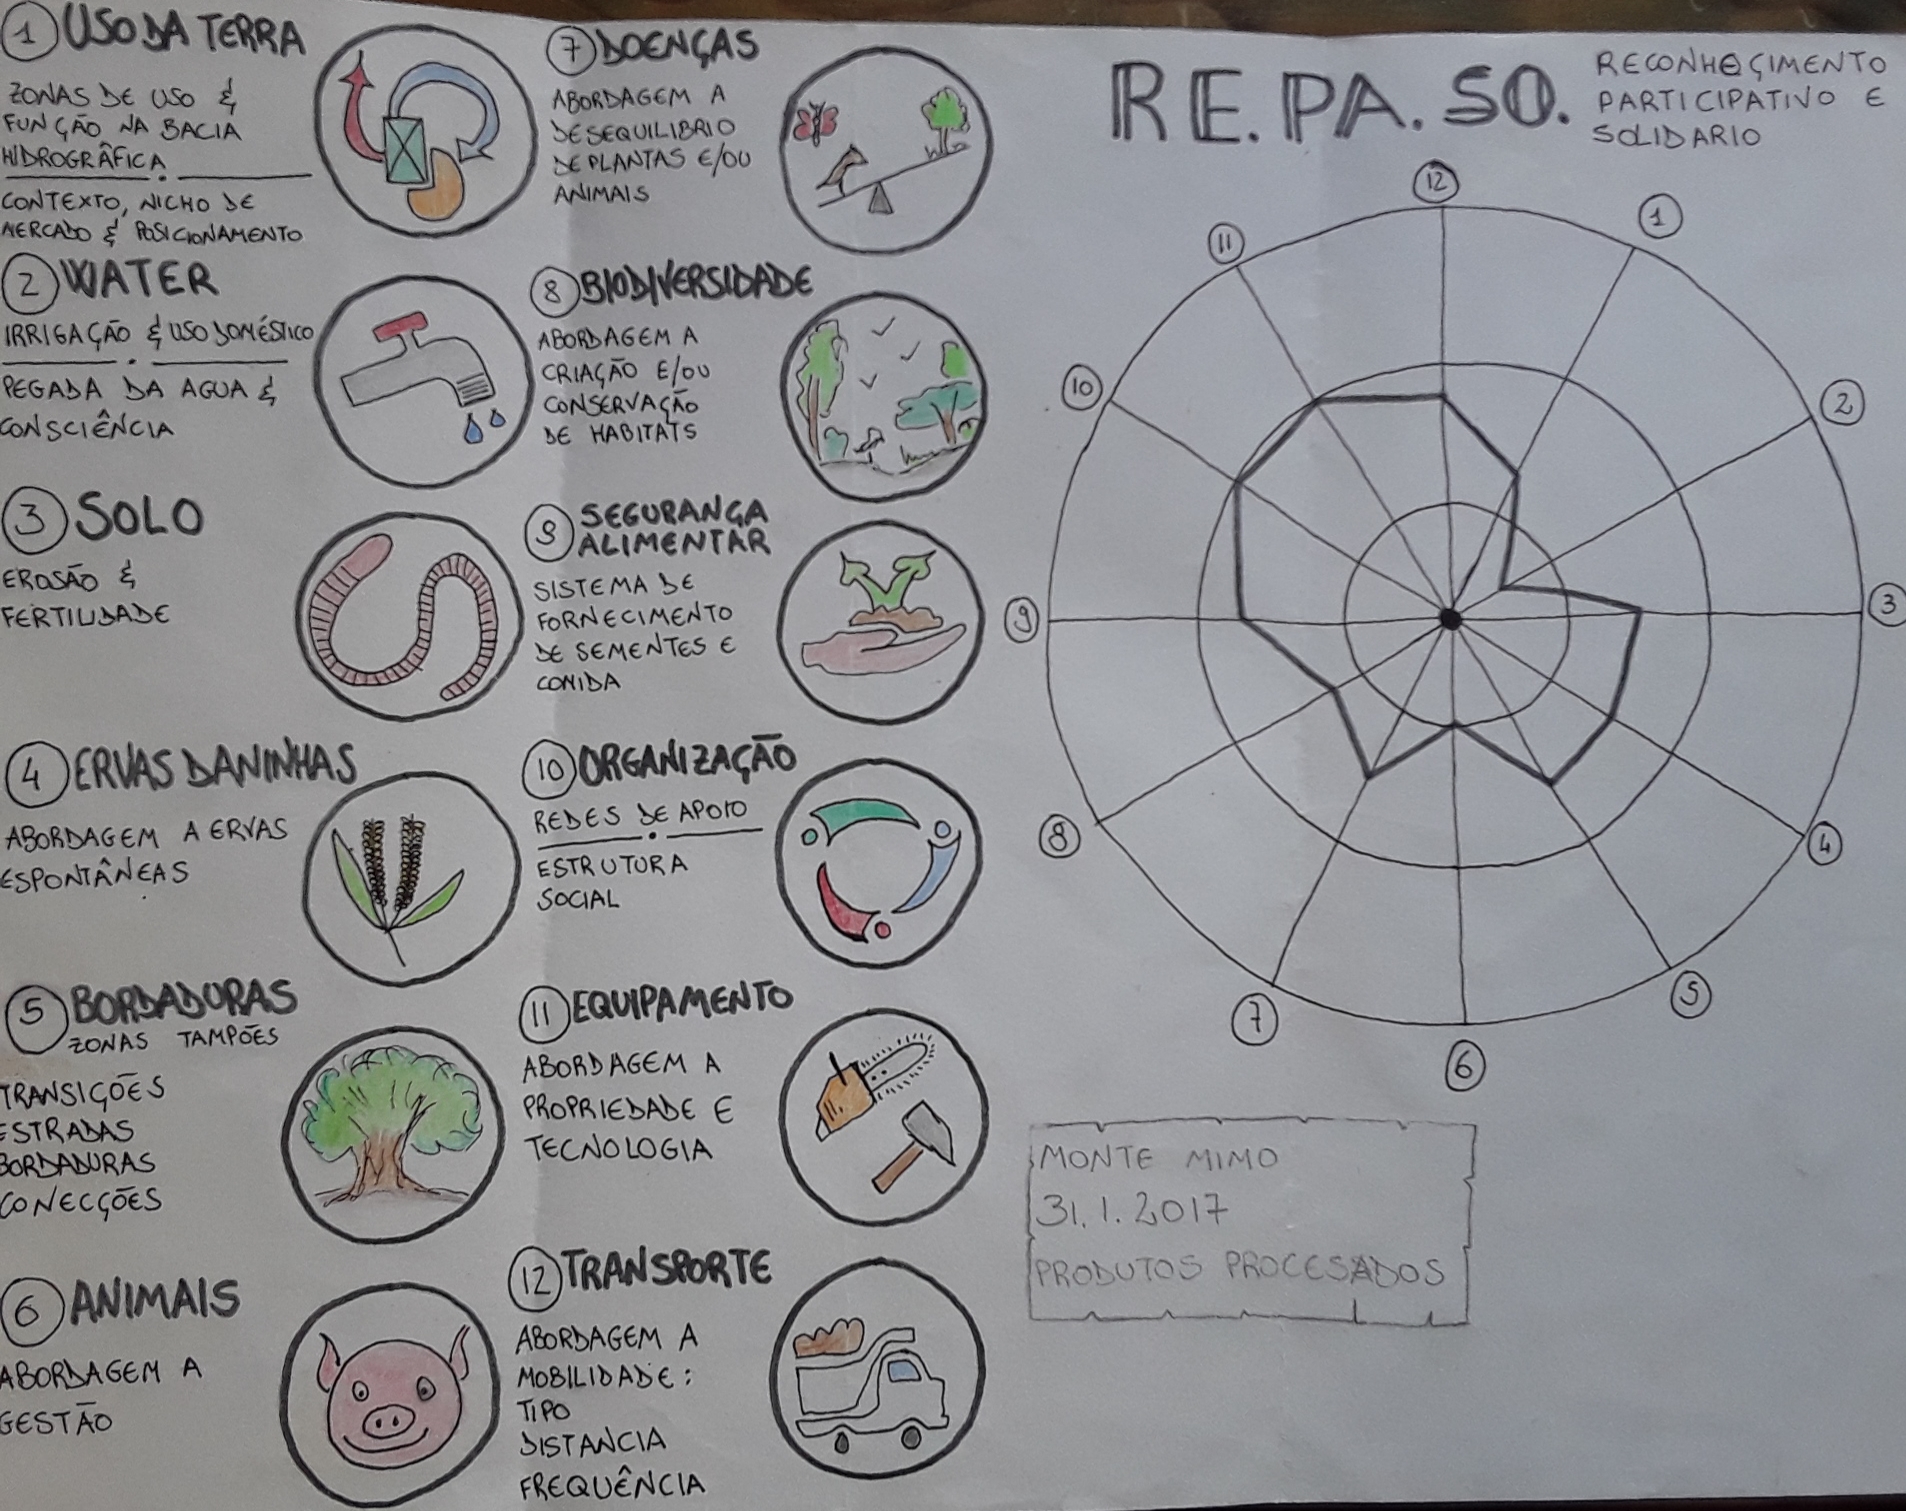 1 USO DA TERRA
ZONAS DE USO &
FUNÇÃO NA BACIA
HIDROGRÂFICA
CONTEXTO, NICHO DE
MERCADO & POSICIONAMENTO
2 WATER
IRRIGAÇÃO & USO DOMÉSTICO
PEGADA DA AGUA &
CONSCIÊNCIA
3 SOLO
EROSÃO &
FERTILIDADE
4 ERVAS DANINHAS
ABORDAGEM A ERVAS
ESPONTÂNEAS
5 BORDADURAS
ZONAS TAMPÕES
TRANSIÇÕES
ESTRADAS
BORDADURAS
CONECÇÕES
6 ANIMAIS
ABORDAGEM A
GESTÃO
7 DOENÇAS
ABORDAGEM A
DESEQUILIBRIO
DE PLANTAS E/OU
ANIMAIS
8 BIODIVERSIDADE
ABORDAGEM A
CRIAÇÃO E/OU
CONSERVAÇÃO
DE HABITATS
9 SEGURANÇA
ALIMENTAR
SISTEMA DE
FORNECIMENTO
DE SEMENTES E
COMIDA
10 ORGANIZAÇÃO
REDES DE APOIO
ESTRUTURA
SOCIAL
11 EQUIPAMENTO
ABORDAGEM A
PROPRIEDADE E
TECNOLOGIA
12 TRANSPORTE
ABORDAGEM A
MOBILIDADE:
TIPO
DISTANCIA
FREQUÊNCIA
RE.PA.SO.
RECONHEÇIMENTO
PARTICIPATIVO E
SOLIDARIO
12
1
2
3
4
5
6
7
8
9
10
11
MONTE MIMO
31.1.2017
PRODUTOS PROCESADOS